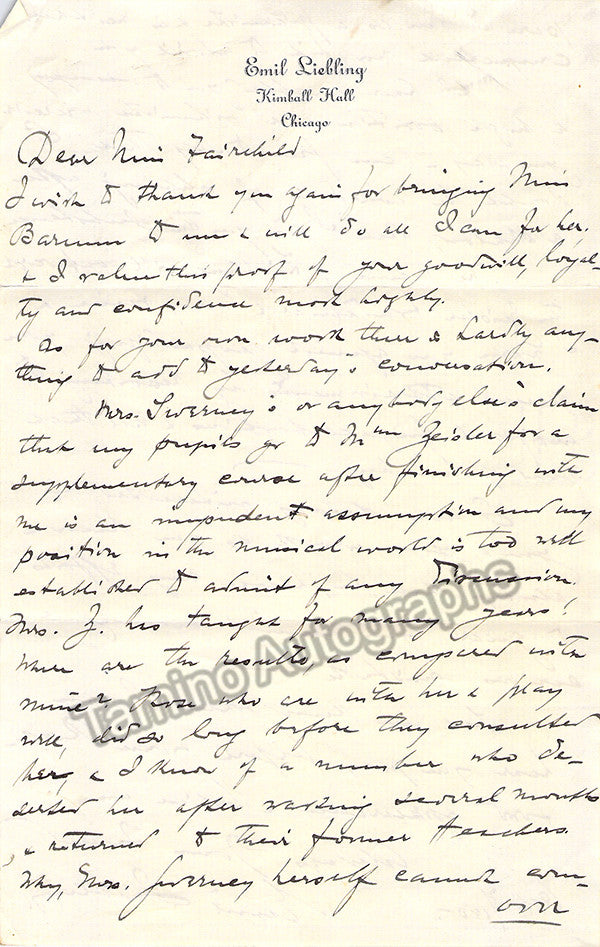 Emil Liebling
Kimball Hall
Chicago
Dear Miss Fairchild
I wish to thank you again for bringing Miss
Barnum to me & will do all I can for her.
& I value this proof of your goodwill, loyal-
ty and confidence most highly.
As for your own work there is hardly any-
thing to add to yesterday's conversation.
Mrs. Swerney's or anybody else's claim
that my pupils go to Mme Zeisler for a
supplementary course after finishing with
me is an impudent assumption and my
position in the musical world is too well
established to admit of any Discussion.
Mrs. Z. has taught for many years!
Where are the results as compared with
mine? Those who are with her & play
well, did so long before they consulted
her, & I know of a number who de-
serted her after wasting several months
& returned to their former teachers.
Why, Mrs. Swerney herself cannot com-
over
Tamino Autographs